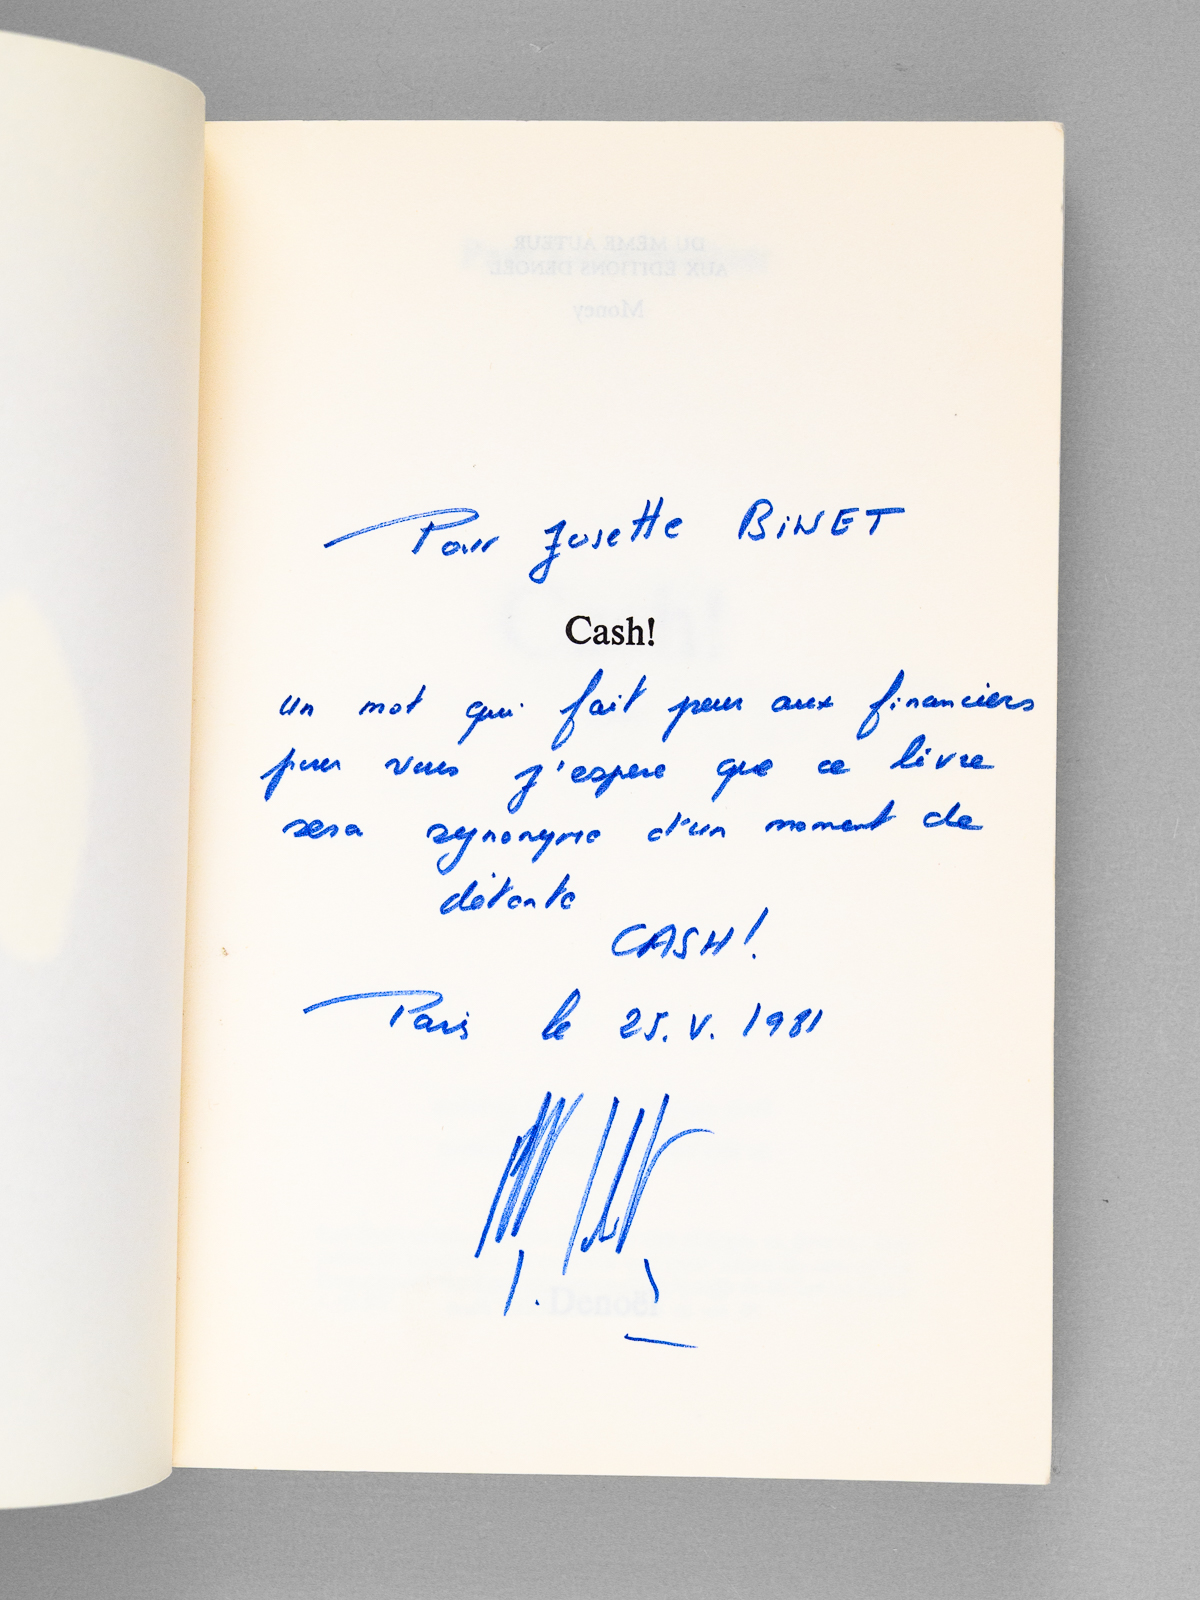 DU MÊME AUTEUR
AUX ÉDITIONS DENOËL
Money
Pour Josette BINET
Cash!
un mot qui fait peur aux financiers
pour vous j'espere que ce livre
sera synonyme d'un moment de
détente
CASH!
Paris le 25. V. 1981
Denoël